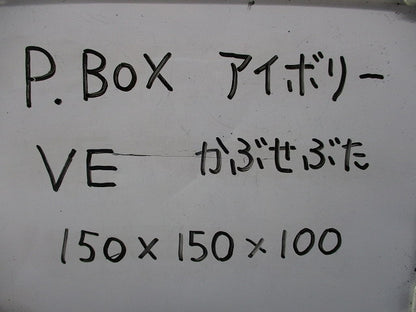 P.BOX アイボリー
VE かぶせぶた
150×150×100